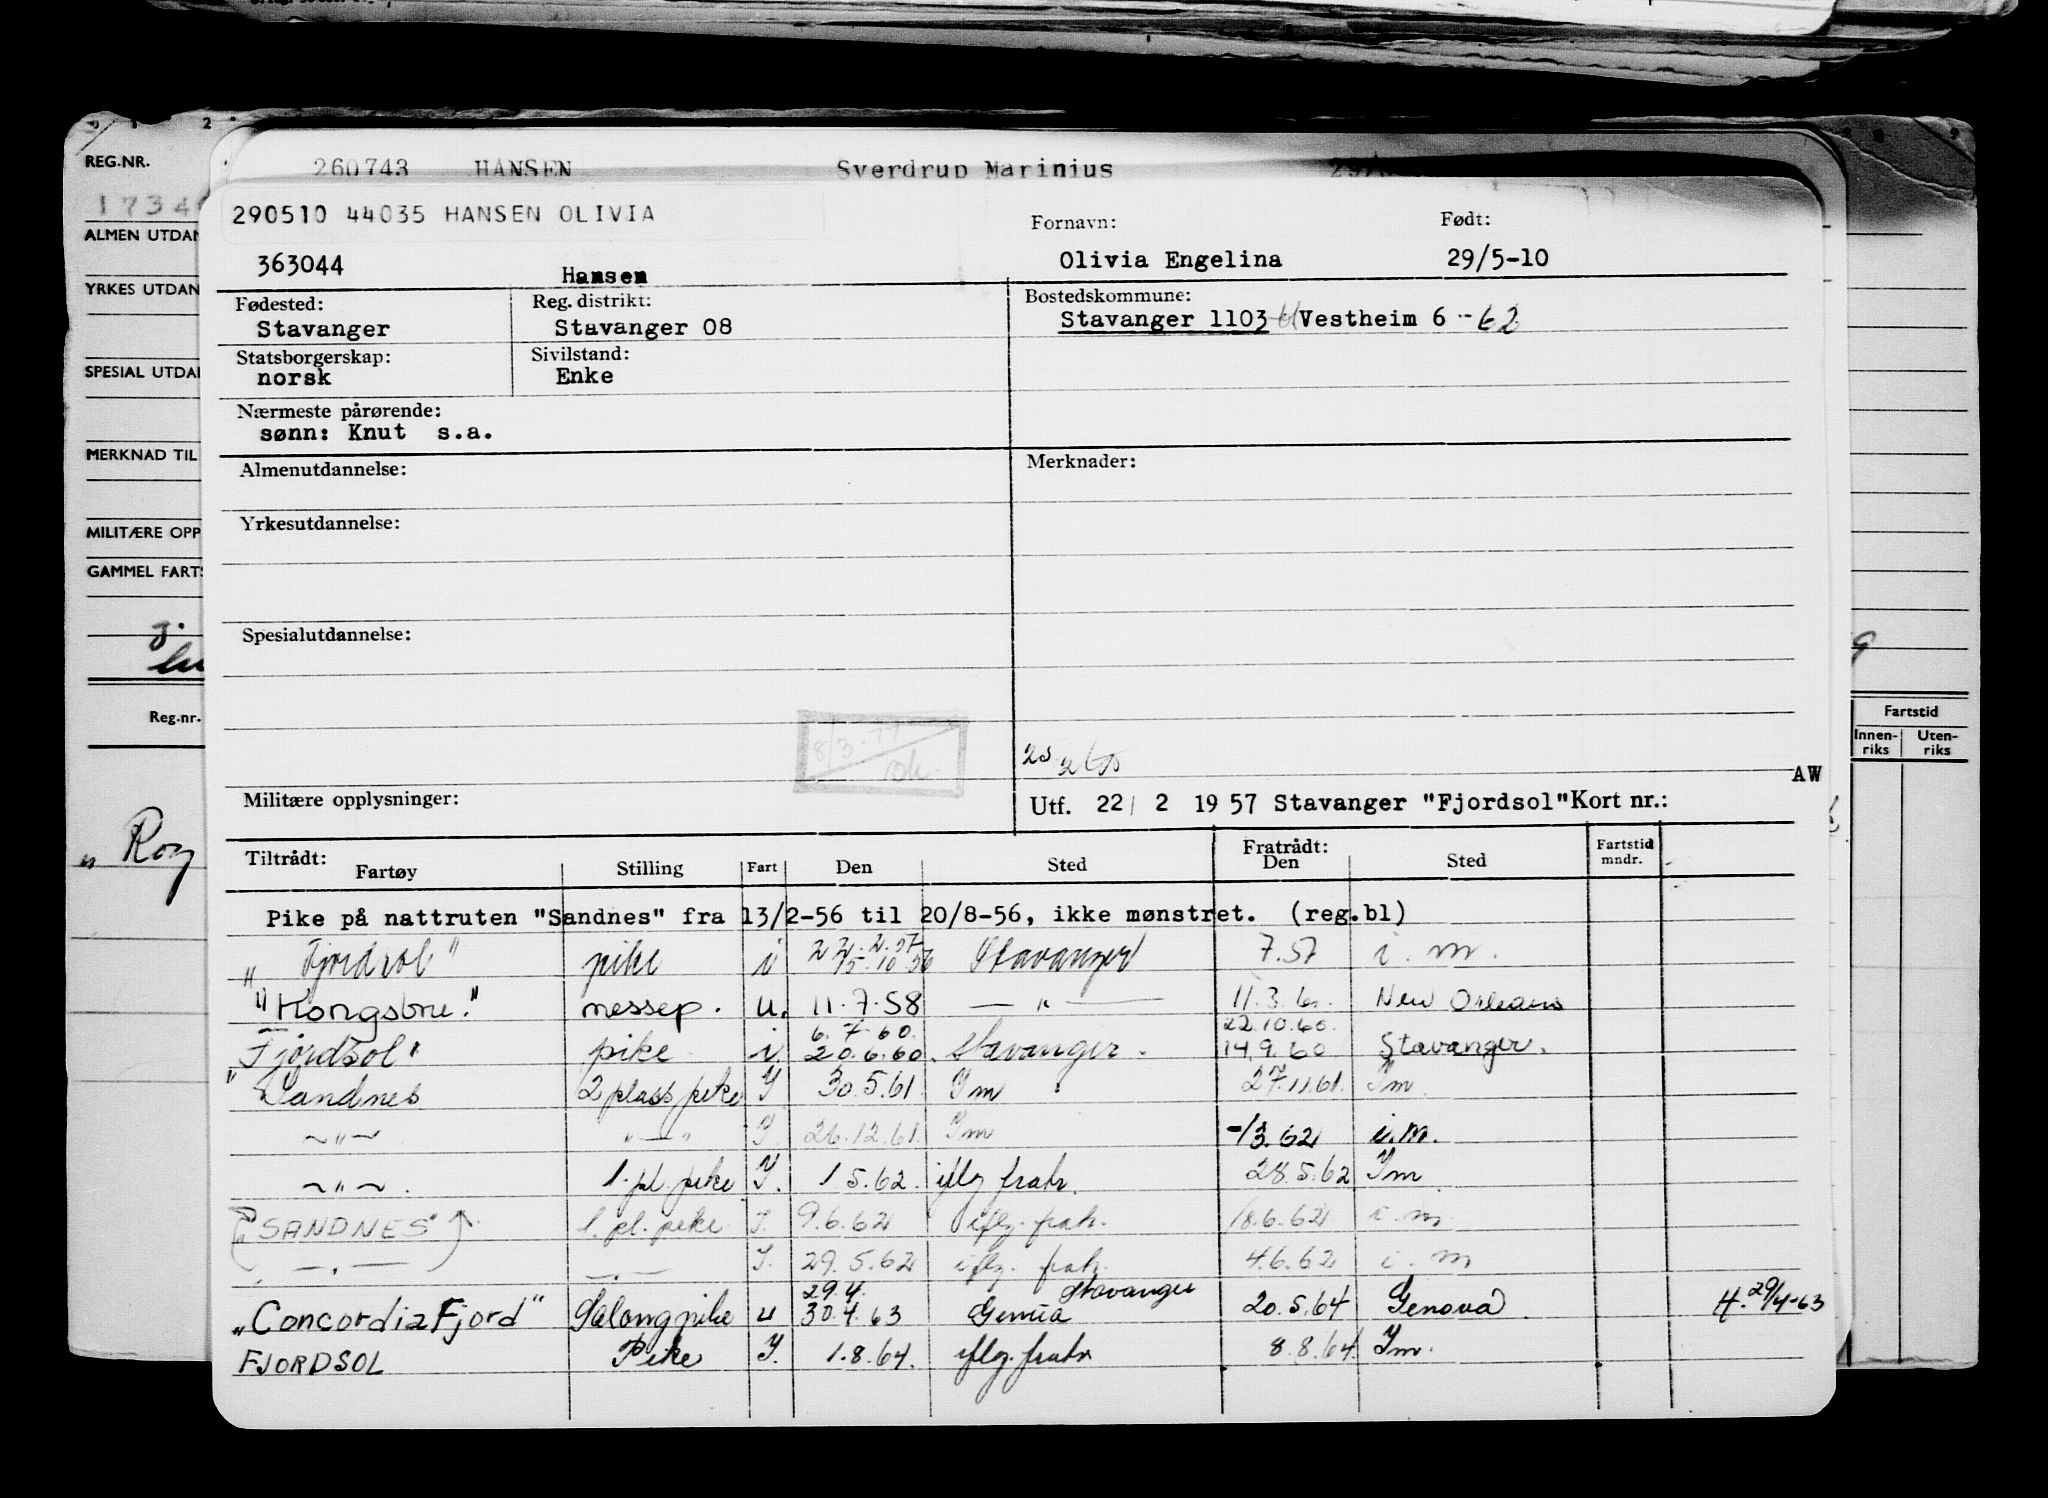 REG.NR.
260743 HANSEN Sverdrup Marinius
1734
290510 44035 HANSEN OLIVIA Fornavn: Født:
ALMEN UTDAN
363044 Hansen Olivia Engelina 29/5-10
YRKES UTDAN
Fødested: Reg. distrikt: Bostedskommune:
Stavanger Stavanger 08 Stavanger 1103 Vestheim 6 -62
Statsborgerskap: Sivilstand:
SPESIAL UTDAN
norsk Enke
Nærmeste pårørende:
sønn: Knut s.a.
MERKNAD TIL
Almenutdannelse: Merknader:
Yrkesutdannelse:
MILITÆRE OPP
GAMMEL FARTS
Spesialutdannelse:
Reg.nr. Fartstid
Innen-riks Uten-riks
8/3.77
AW
Militære opplysninger: Utf. 22/ 2 1957 Stavanger "Fjordsol" Kort nr.:
Tiltrådt: Fratrådt: Fartstid mndr.
Fartøy Stilling Fart Den Sted Den Sted
Pike på nattruten "Sandnes" fra 13/2-56 til 20/8-56, ikke mønstret. (reg.bl)
"Fjordsol" pike i 22.2.57 Stavanger 7.57 i.m.
15.10.56
"Kongsbru" messep. u. 11.7.58 — " — 11.3.60. New Orleans
6.7.60. 22.10.60.
Fjordsol" pike i 20.6.60. Stavanger. 14.9.60 Stavanger.
"Sandnes 2 plass pike I 30.5.61 Im 27.11.61. Im
~"~ "—" I. 26.12.61. Im -/3.62 i.m.
~"~. 1. pl. pike I. 1 5.62. iflg fratr. 28.5.62 Im
"SANDNES" 1. pl. pike I. 9.6.62 iflg. fratr. 18.6.62 i.m.
— . — — . — I. 29.5.62 iflg. fratr. 4.6.62 i.m
29.4. Stavanger
"Concordia Fjord" Salongpike u 30.4.63 Genua 20.5.64 Genova. H. 29/4-63
FJORDSOL Pike I. 1.8.64. iflg. fratr 8.8.64. Im.